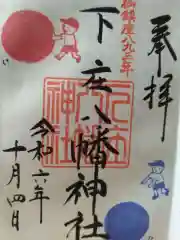 奉拝
御鎮座八九三年
下庄八幡神社
令和六年
十月四日